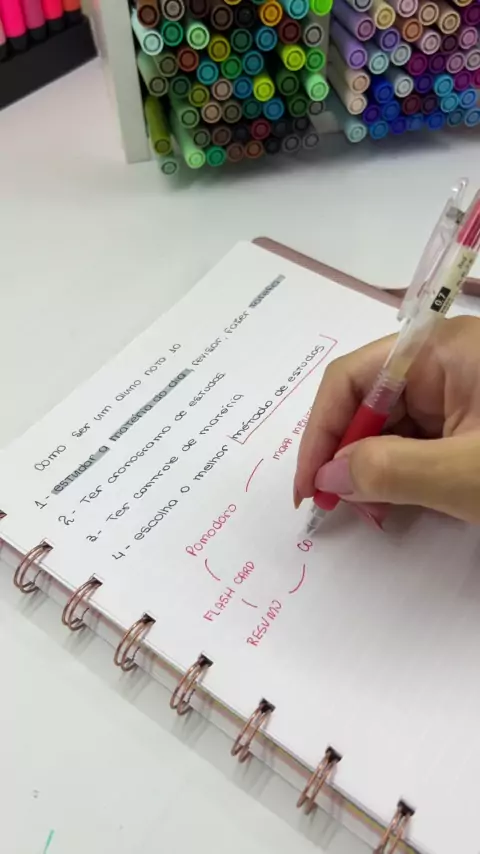 Como ser um aluno nota 10
1- estudar a matéria do dia, revisar, fazer
2- Ter cronograma de estudos
3- Ter controle de matéria
4- escolha o melhor método de estudos
MAPA
Pomodoro
FLASH CARD
RESUMO
CO
0.7